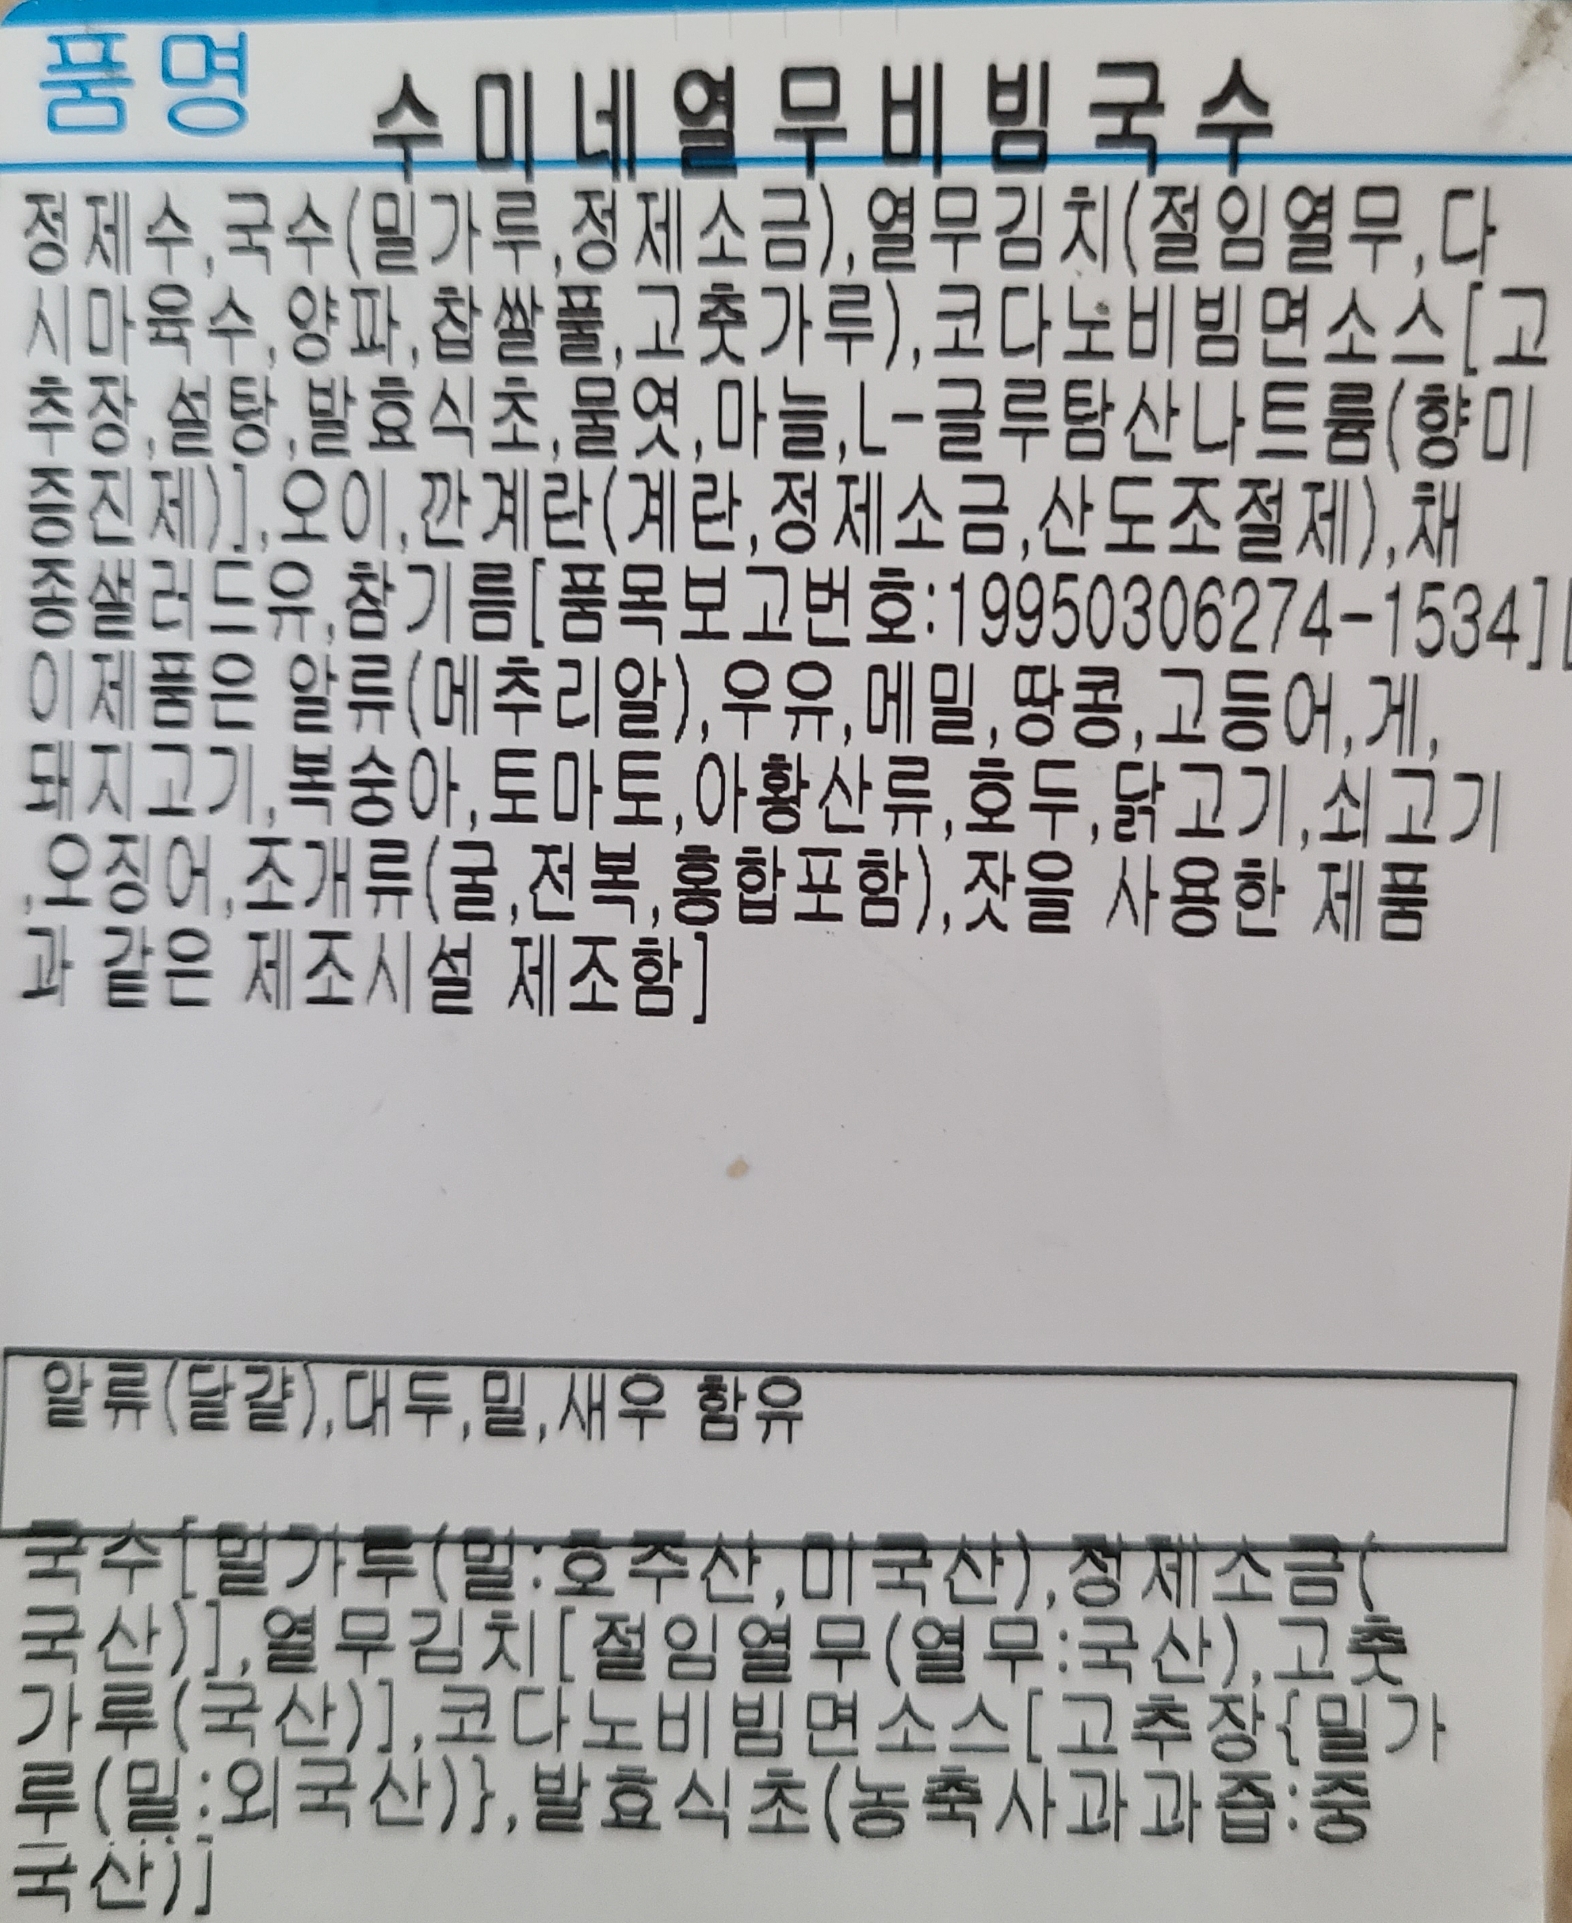 품명 수미네열무비빔국수
정제수,국수(밀가루,정제소금),열무김치(절임열무,다
시마육수,양파,찹쌀풀,고춧가루),코다노비빔면소스[고
추장,설탕,발효식초,물엿,마늘,L-글루탐산나트륨(향미
증진제)],오이,깐계란(계란,정제소금,산도조절제),채
종샐러드유,참기름[품목보고번호:19950306274-1534][
이제품은 알류(메추리알),우유,메밀,땅콩,고등어,게,
돼지고기,복숭아,토마토,아황산류,호두,닭고기,쇠고기
,오징어,조개류(굴,전복,홍합포함),잣을 사용한 제품
과 같은 제조시설 제조함]
알류(달걀),대두,밀,새우 함유
국수[밀가루(밀:호주산,미국산),정제소금(
국산)],열무김치[절임열무(열무:국산),고춧
가루(국산)],코다노비빔면소스[고추장{밀가
루(밀:외국산)},발효식초(농축사과과즙:중
국산)]